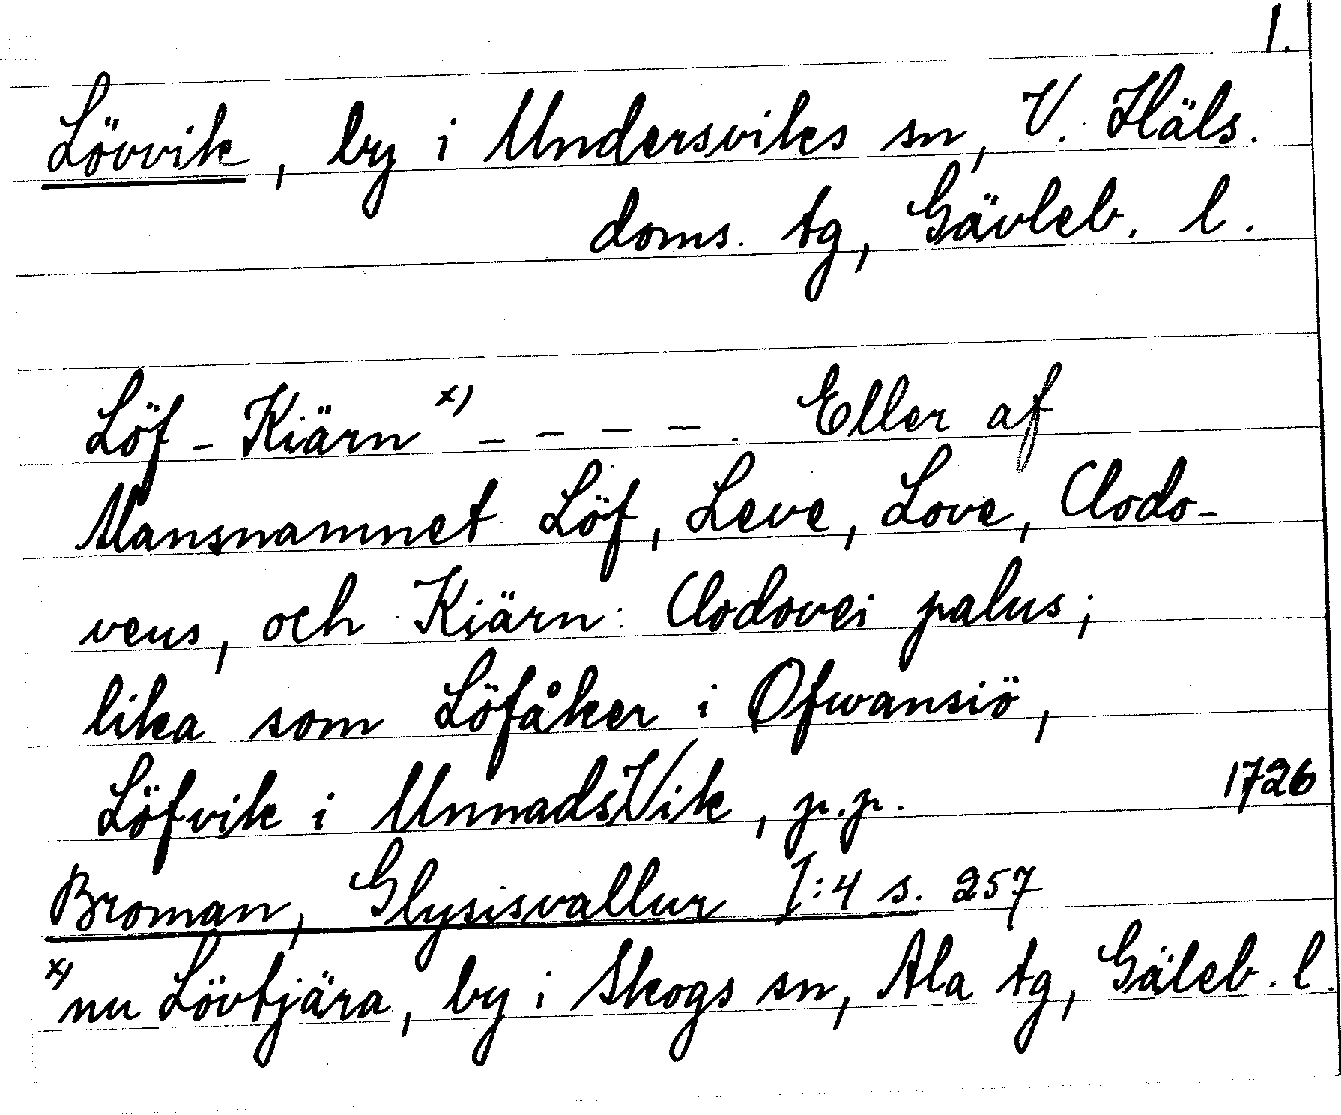 1.
Lövvik, by i Undersviks sn, V. Häls.
doms. tg, Gävleb. l.
Löf-Kiärn x) - - - - . Eller af
Mansnamnet Löf, Leve, Love, Clodo-
veus, och Kiärn: Clodovei palus;
lika som Löfåker i Ofwansiö,
Löfvik i UnnadsVik, p.p. 1726
Broman, Glysisvallur I:4 s. 257
x) nu Lövtjära, by i Skogs sn, Ala tg, Gäleb. l.